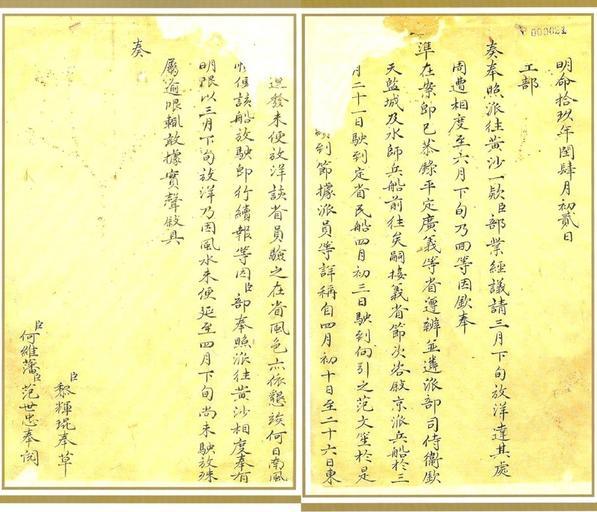 000021
明命拾玖年閏肆月初貳日
工部
奏奉照派往黃沙一款臣部業經議請三月下旬放洋達其處
周遭相度至六月下旬乃回等因欽奉
準在案即已恭錄平定廣義等省遵辦並遴派部司侍衛欽
天監城及水師兵船前往矣嗣接義省節次咨敘京派兵船於三
月二十一日駛到定省民船四月初三日駛到向引之范文笙於是
到節據派員等詳稱自四月初十日至二十六日東
迅發未便放洋該省員驗之在省風色亦依懇該何日南風
順但該船放駛即行續報等因臣部奉照派往黃沙相度奉有
明限以三月下旬放洋乃因風水未便延至四月下旬尚未駛放殊
屬逾限輒敢據實聲敘具
奏
臣黎輝琨奉草
臣何維藩臣范世忠奉閱